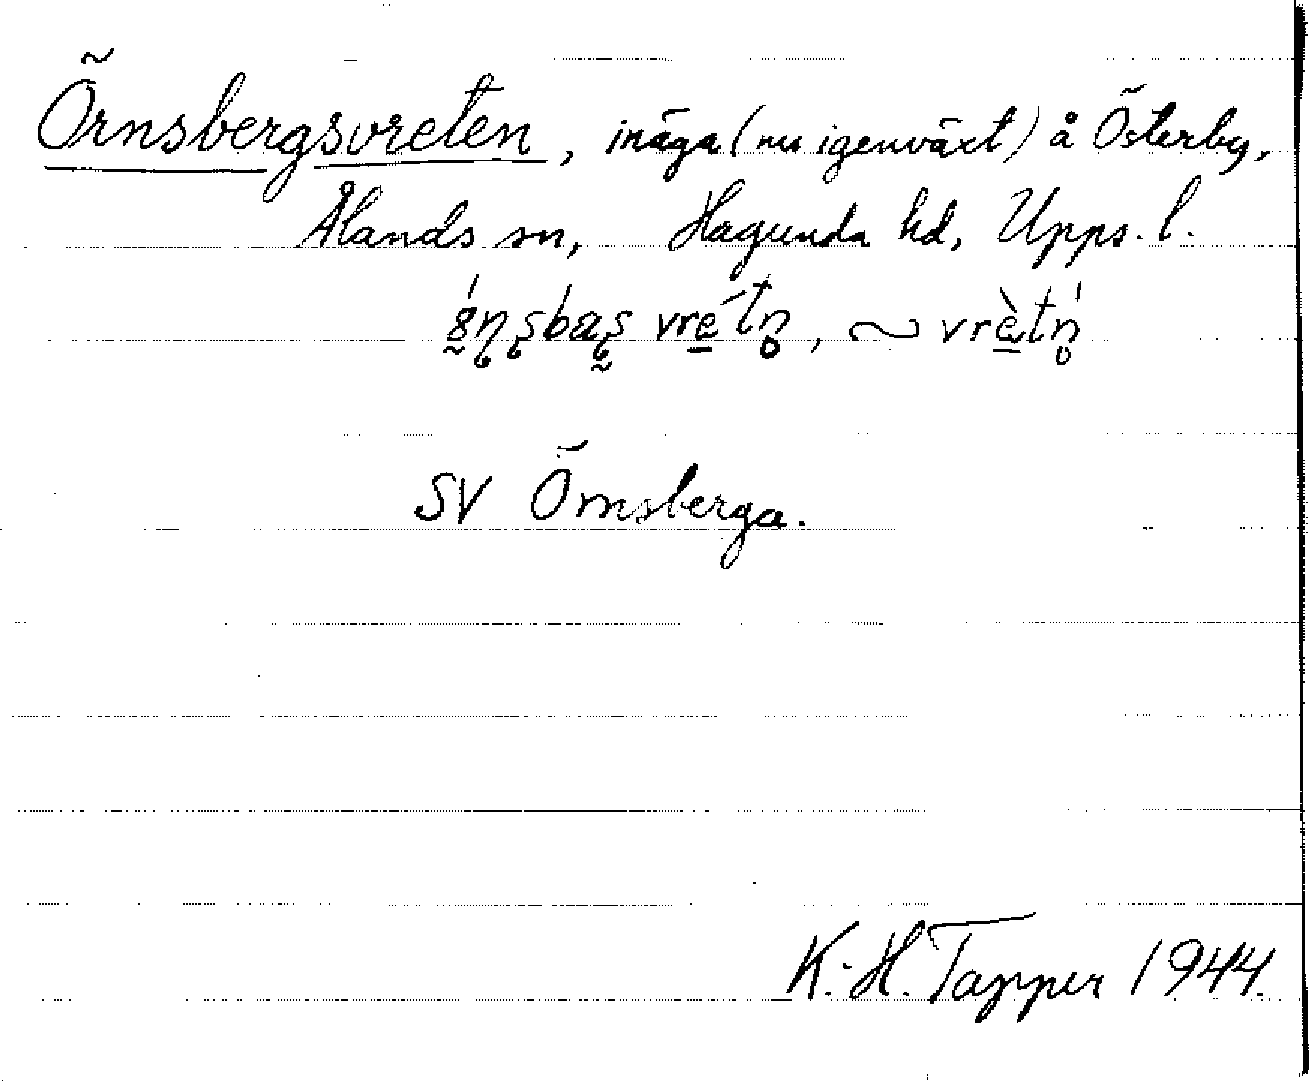 Örnsbergsvreten, inäga (nu igenväxt) å Österby,
Ålands sn, Hagunda hd, Upps. l.
vrétn̥, ~ vrètn̥
SV Örnsberga.
K.-H. Tapper 1944.